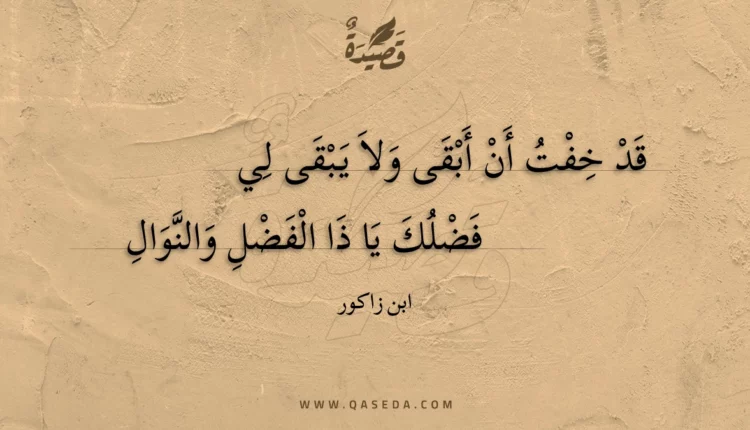 قَصِيدَةٌ
قَدْ خِفْتُ أَنْ أَبْقَى وَلاَ يَبْقَى لِي
فَضْلُكَ يَا ذَا الْفَضْلِ وَالنَّوَالِ
ابن زاكور
WWW.QASEDA.COM